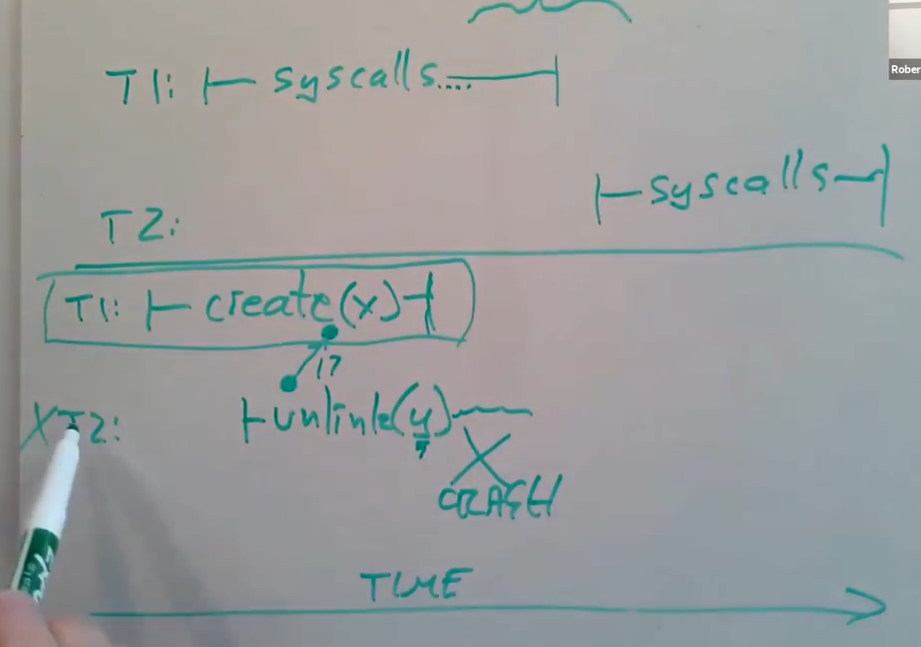 Rober
T1: syscalls....
syscalls
T2:
T1: create(x)
17
T2: unlink(y)
CRASH
TIME